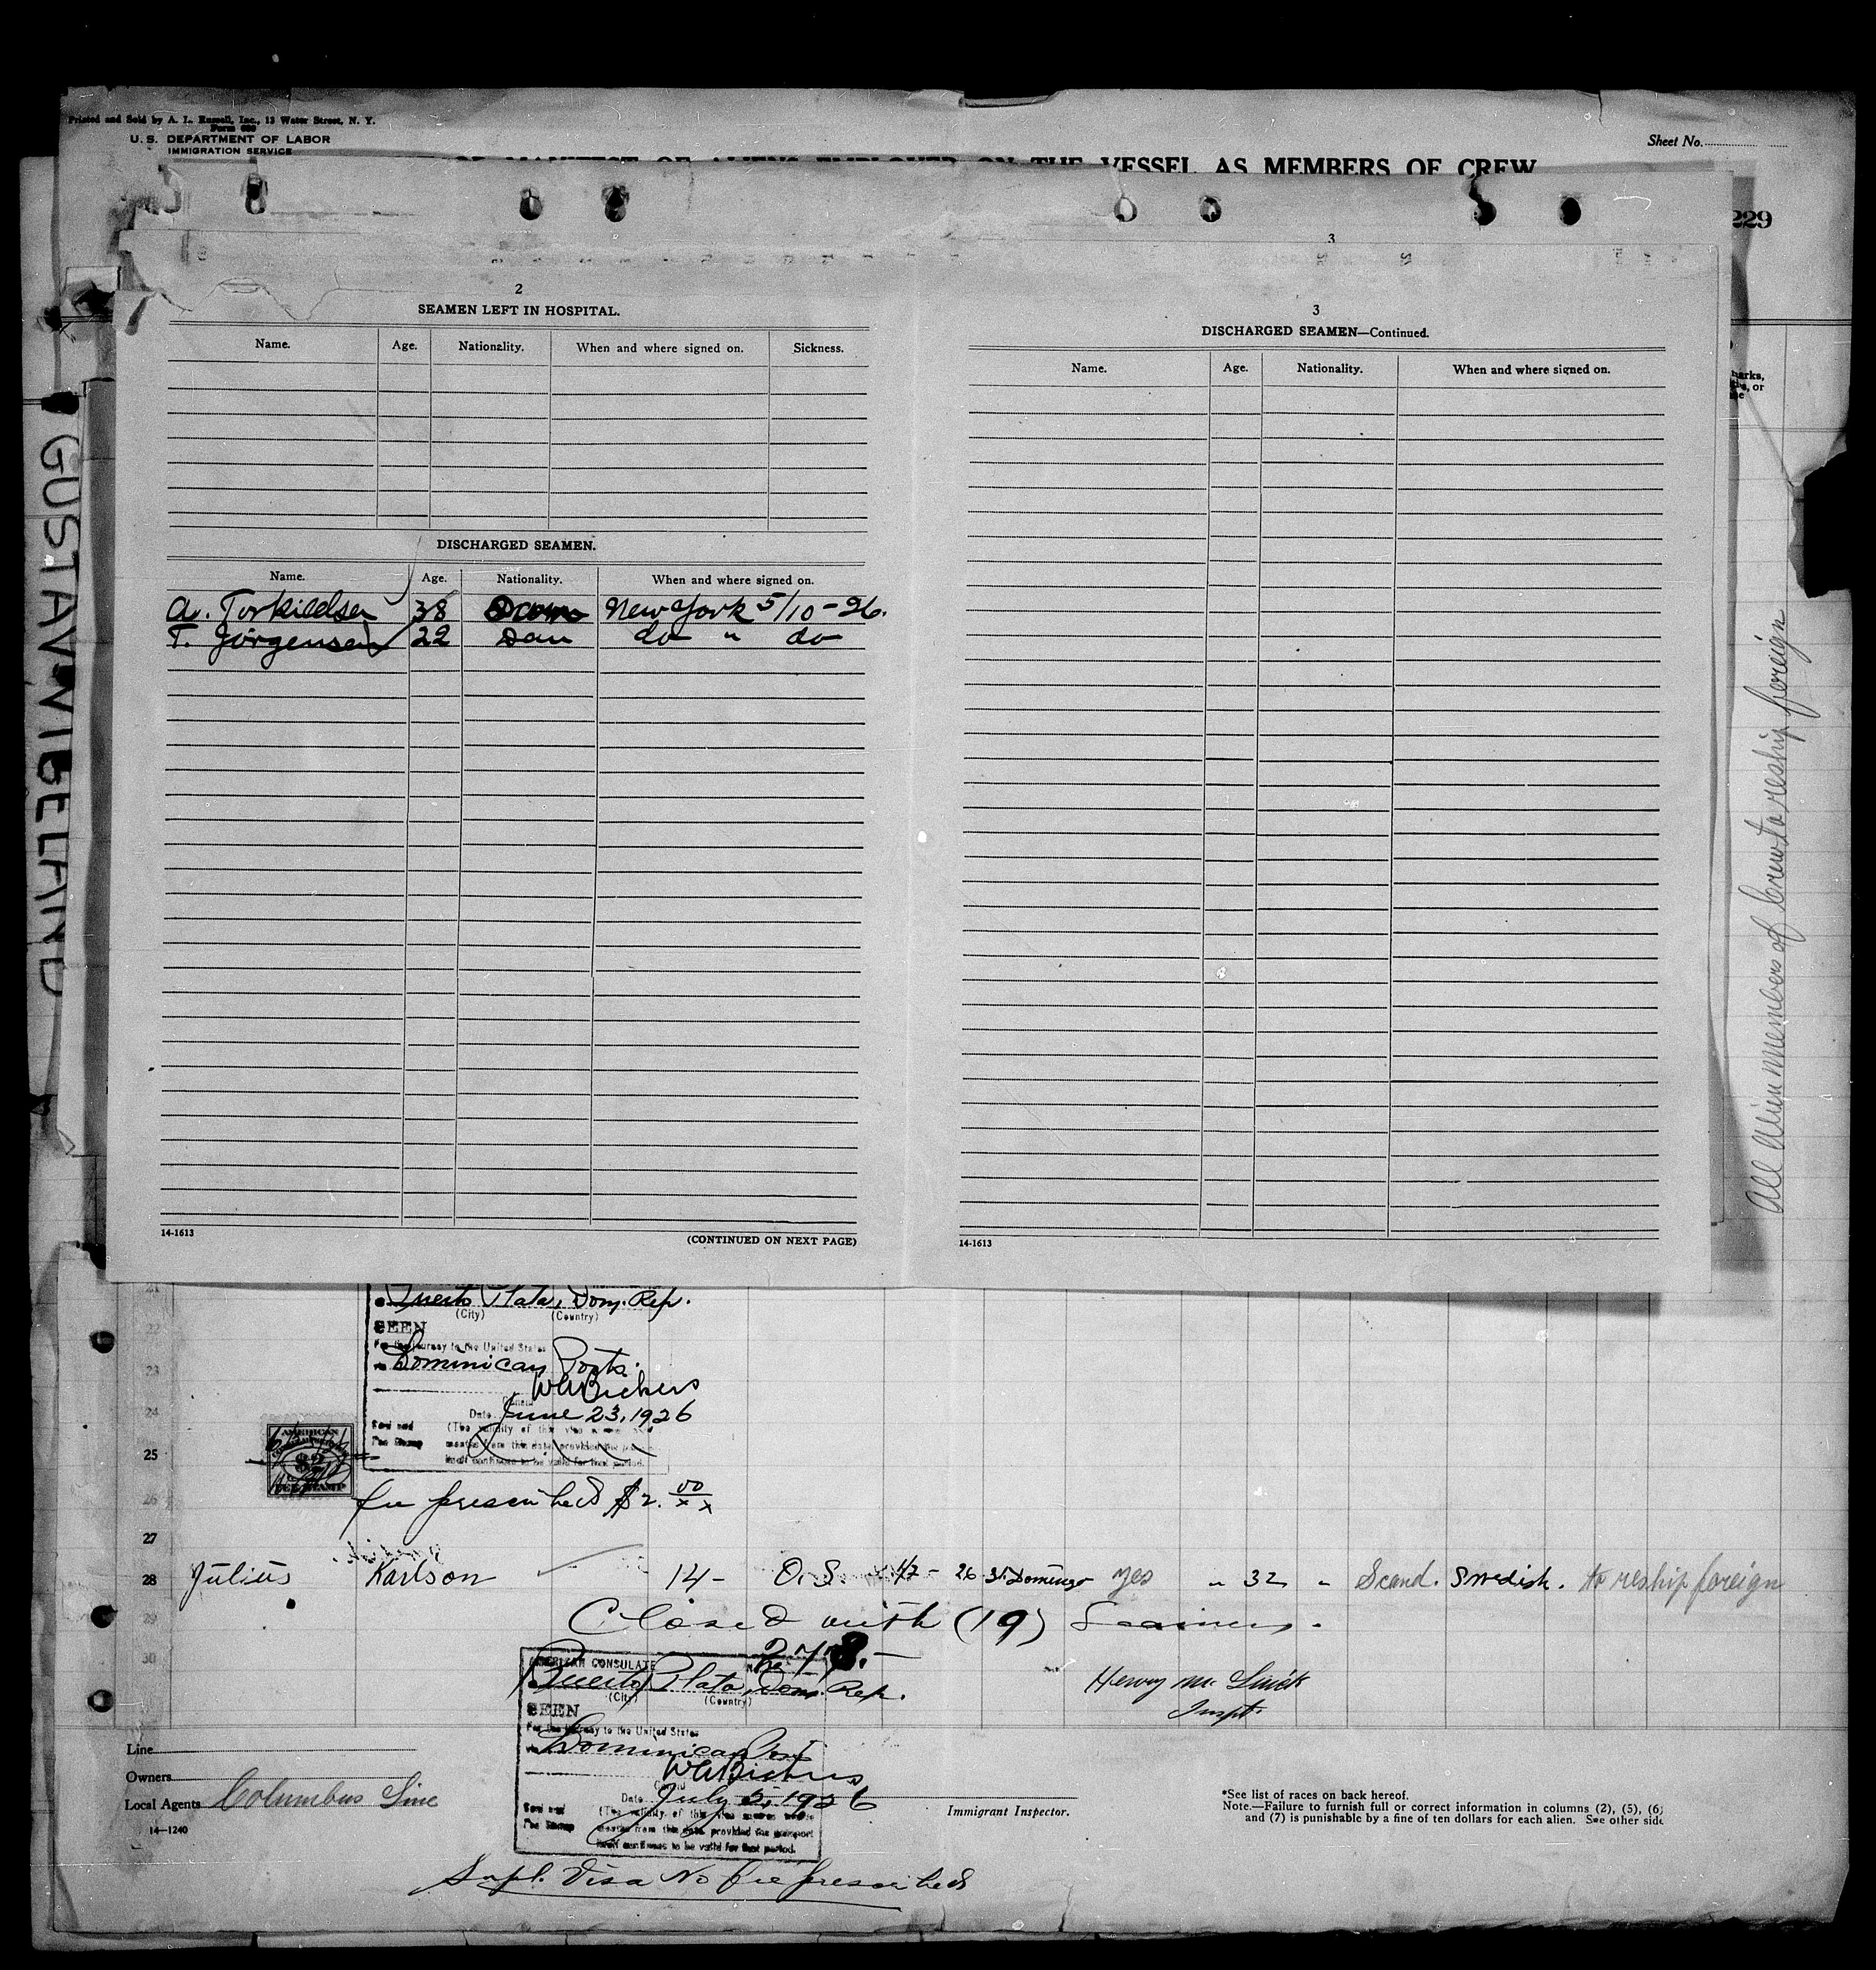 Printed and Sold by A. L. Russell, Inc., 13 Water Street, N. Y.
Form 680
U. S. DEPARTMENT OF LABOR
IMMIGRATION SERVICE
Sheet No.
OF MANIFEST OF ALIENS EMPLOYED ON THE VESSEL AS MEMBERS OF CREW
229
3
2
SEAMEN LEFT IN HOSPITAL.
Name. Age. Nationality. When and where signed on. Sickness.
DISCHARGED SEAMEN.
Name. Age. Nationality. When and where signed on.
A. Torkildsen 38 New York 5/10-26.
T. Jörgensen 22 Dan do " do
14-1613
(CONTINUED ON NEXT PAGE)
3
DISCHARGED SEAMEN—Continued.
Name. Age. Nationality. When and where signed on.
14-1613
GUSTAV WIBELAND
All Alien members of Crew to reship foreign
21
Puerto Plata, Dom. Rep.
(City) (Country)
22
SEEN
For the journey to the United States
via Dominican Ports.
23
W A Bickers
Consul
24
Date June 23, 1926
Seal and
Fee Stamp
(The validity of this visa
months from this date, provided the
itself continues to be valid for that period.
25
AMERICAN
$2
FEE STAMP
26
fee prescribed $2. 00/xx
27
28 Julius Karlson 14- O.S. 1/7- 26 St. Domingo yes " 32 " Scand. Swedish. to reship foreign
29
Closed with (19) Seamen.
30
AMERICAN CONSULATE
Puerto Plata, Dom. Rep.
(City) (Country)
SEEN
For the journey to the United States
via Dominican Ports
W A Bickers
Consul
Date July 2, 1926
Seal and
Fee Stamp
(The validity of this visa
months from this date, provided the passport
itself continues to be valid for that period.
Supl. Visa No fee prescribed
Henry M.
Inspt.
Immigrant Inspector.
Line
Owners
Local Agents Columbus Line
14-1240
*See list of races on back hereof.
Note.—Failure to furnish full or correct information in columns (2), (5), (6)
and (7) is punishable by a fine of ten dollars for each alien. See other side